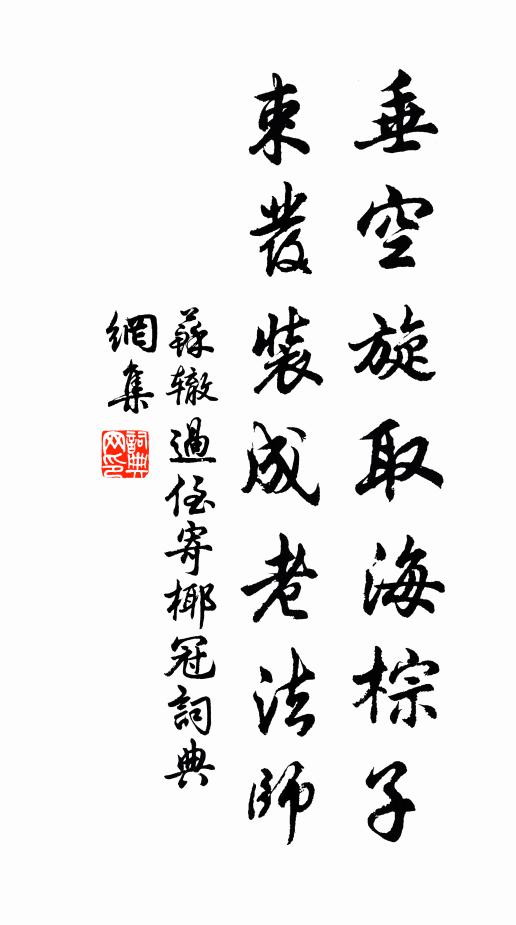 垂空旋取海棕子
束發裝成老法師
蘇轍過侄寄椰冠詞典
網集
詞典網印